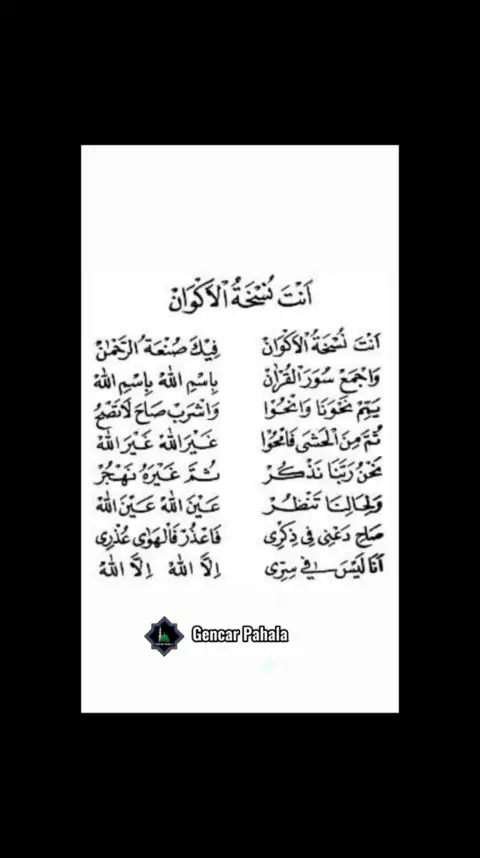 اَنْتَ نُسْخَةُ الْاَكْوَانْ
اَنْتَ نُسْخَةُ الْاَكْوَانْ فِيْكَ صُنْعَةُ الرَّحْمٰنْ
وَاجْمَعْ سُوَرَ الْقُرْاٰنْ بِاِسْمِ اللهْ بِاِسْمِ اللهْ
يَمِّمْ نَحْوَنَا وَانْحُوْا وَاشْرَبْ صَاحَ لَا تَصْحُ
ثُمَّ مِنَ الْحَشٰى فَامْحُوْا غَيْرَ اللهْ غَيْرَ اللهْ
نَحْنُ رَبَّنَا نَذْكُرْ ثُمَّ غَيْرَهُ نَهْجُرْ
وَلِحَالِنَا تَنْظُرْ عَيْنَ اللهْ عَيْنَ اللهْ
صَاحِ دَعْنِى فِى ذِكْرِى فَاعْذُرْ فَالْهَوٰى عُذْرِى
اَنَا لَيْسَ فِيْ سِرِّى اِلَّا اللهُ اِلَّا اللهُ
Gencar Pahala